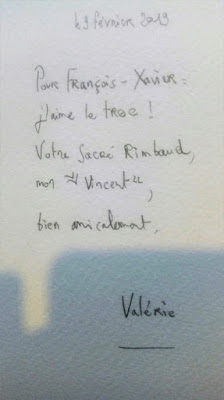 19 février 2019
Pour François-Xavier :
j'aime le troc !
Votre Sacré Rimbaud,
mon "Vincent",
bien amicalement,
Valérie